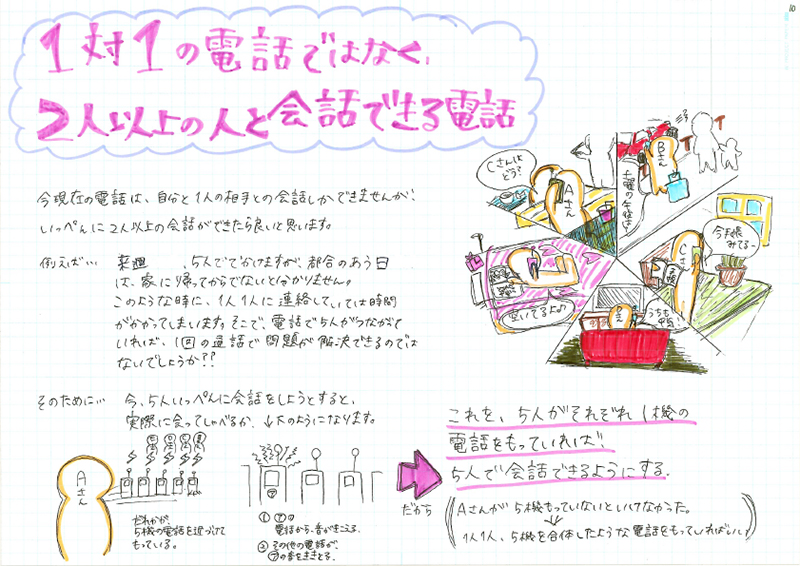 10
1対1の電話ではなく、
2人以上の人と会話できる電話
今現在の電話は、自分と1人の相手との会話しかできませんが、
いっぺんに2人以上の会話ができたら良いと思います。
例えば… 来週 、5人ででかけますが、都合のあう日
は、家に帰ってからでないと分かりません。
このような時に、1人1人に連絡していては時間
がかかってしまいます。そこで、電話で5人がつながって
いれば、1回の通話で問題が解決できるのでは
ないでしょうか??
Cさんは
どう?
Aさん
Bさん
土曜の午後は?
Cさん
今手帳
みてるー
空いてるよ♪
うちも
そのために… 今、5人いっぺんに会話をしようとすると、
実際に会ってしゃべるか、↓下のようになります。
Aさん
だれかが
5機の電話を近づけて
もっている。
ア
① アの
電話から、音がきこえる。
② その他の電話が、
アの音をききとる。
だから
これを、5人がそれぞれ1機の
電話をもっていれば
5人で会話できるようにする。
(Aさんが5機もっていないといけなかった。
↓
1人1人、5機を合体したような電話をもっていればいい)